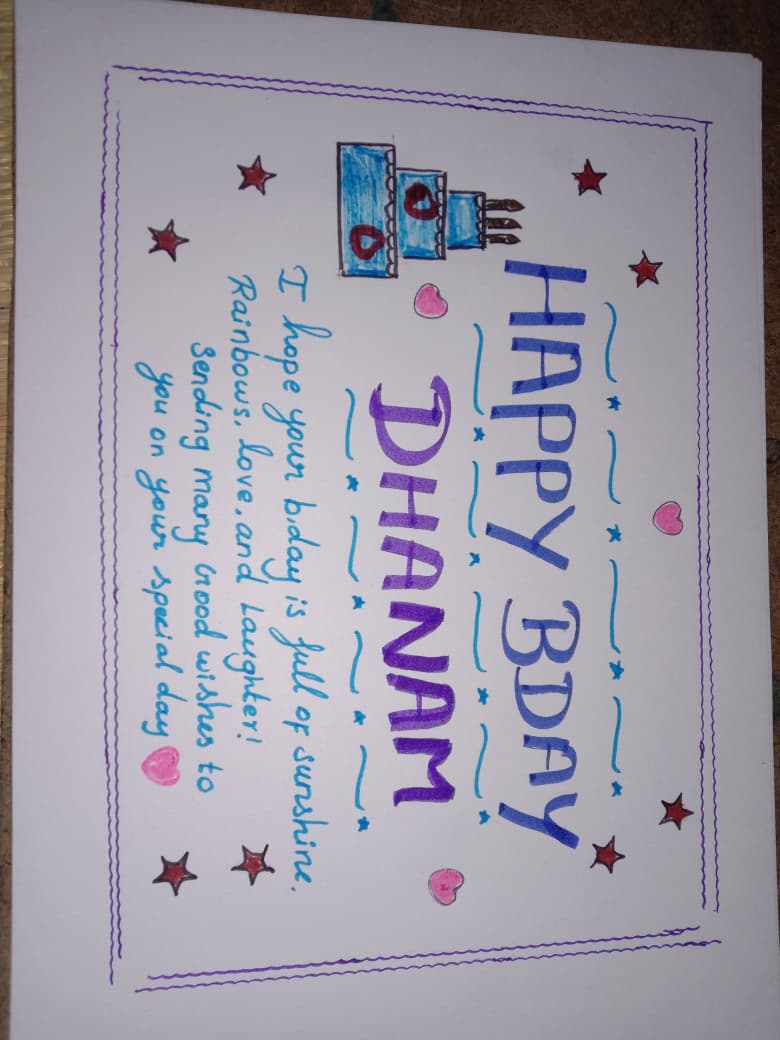 HAPPY BDAY
DHANAM
I hope your b.day is full of sunshine,
Rainbows, love, and Laughter!
Sending many Good wishes to
you on your special day